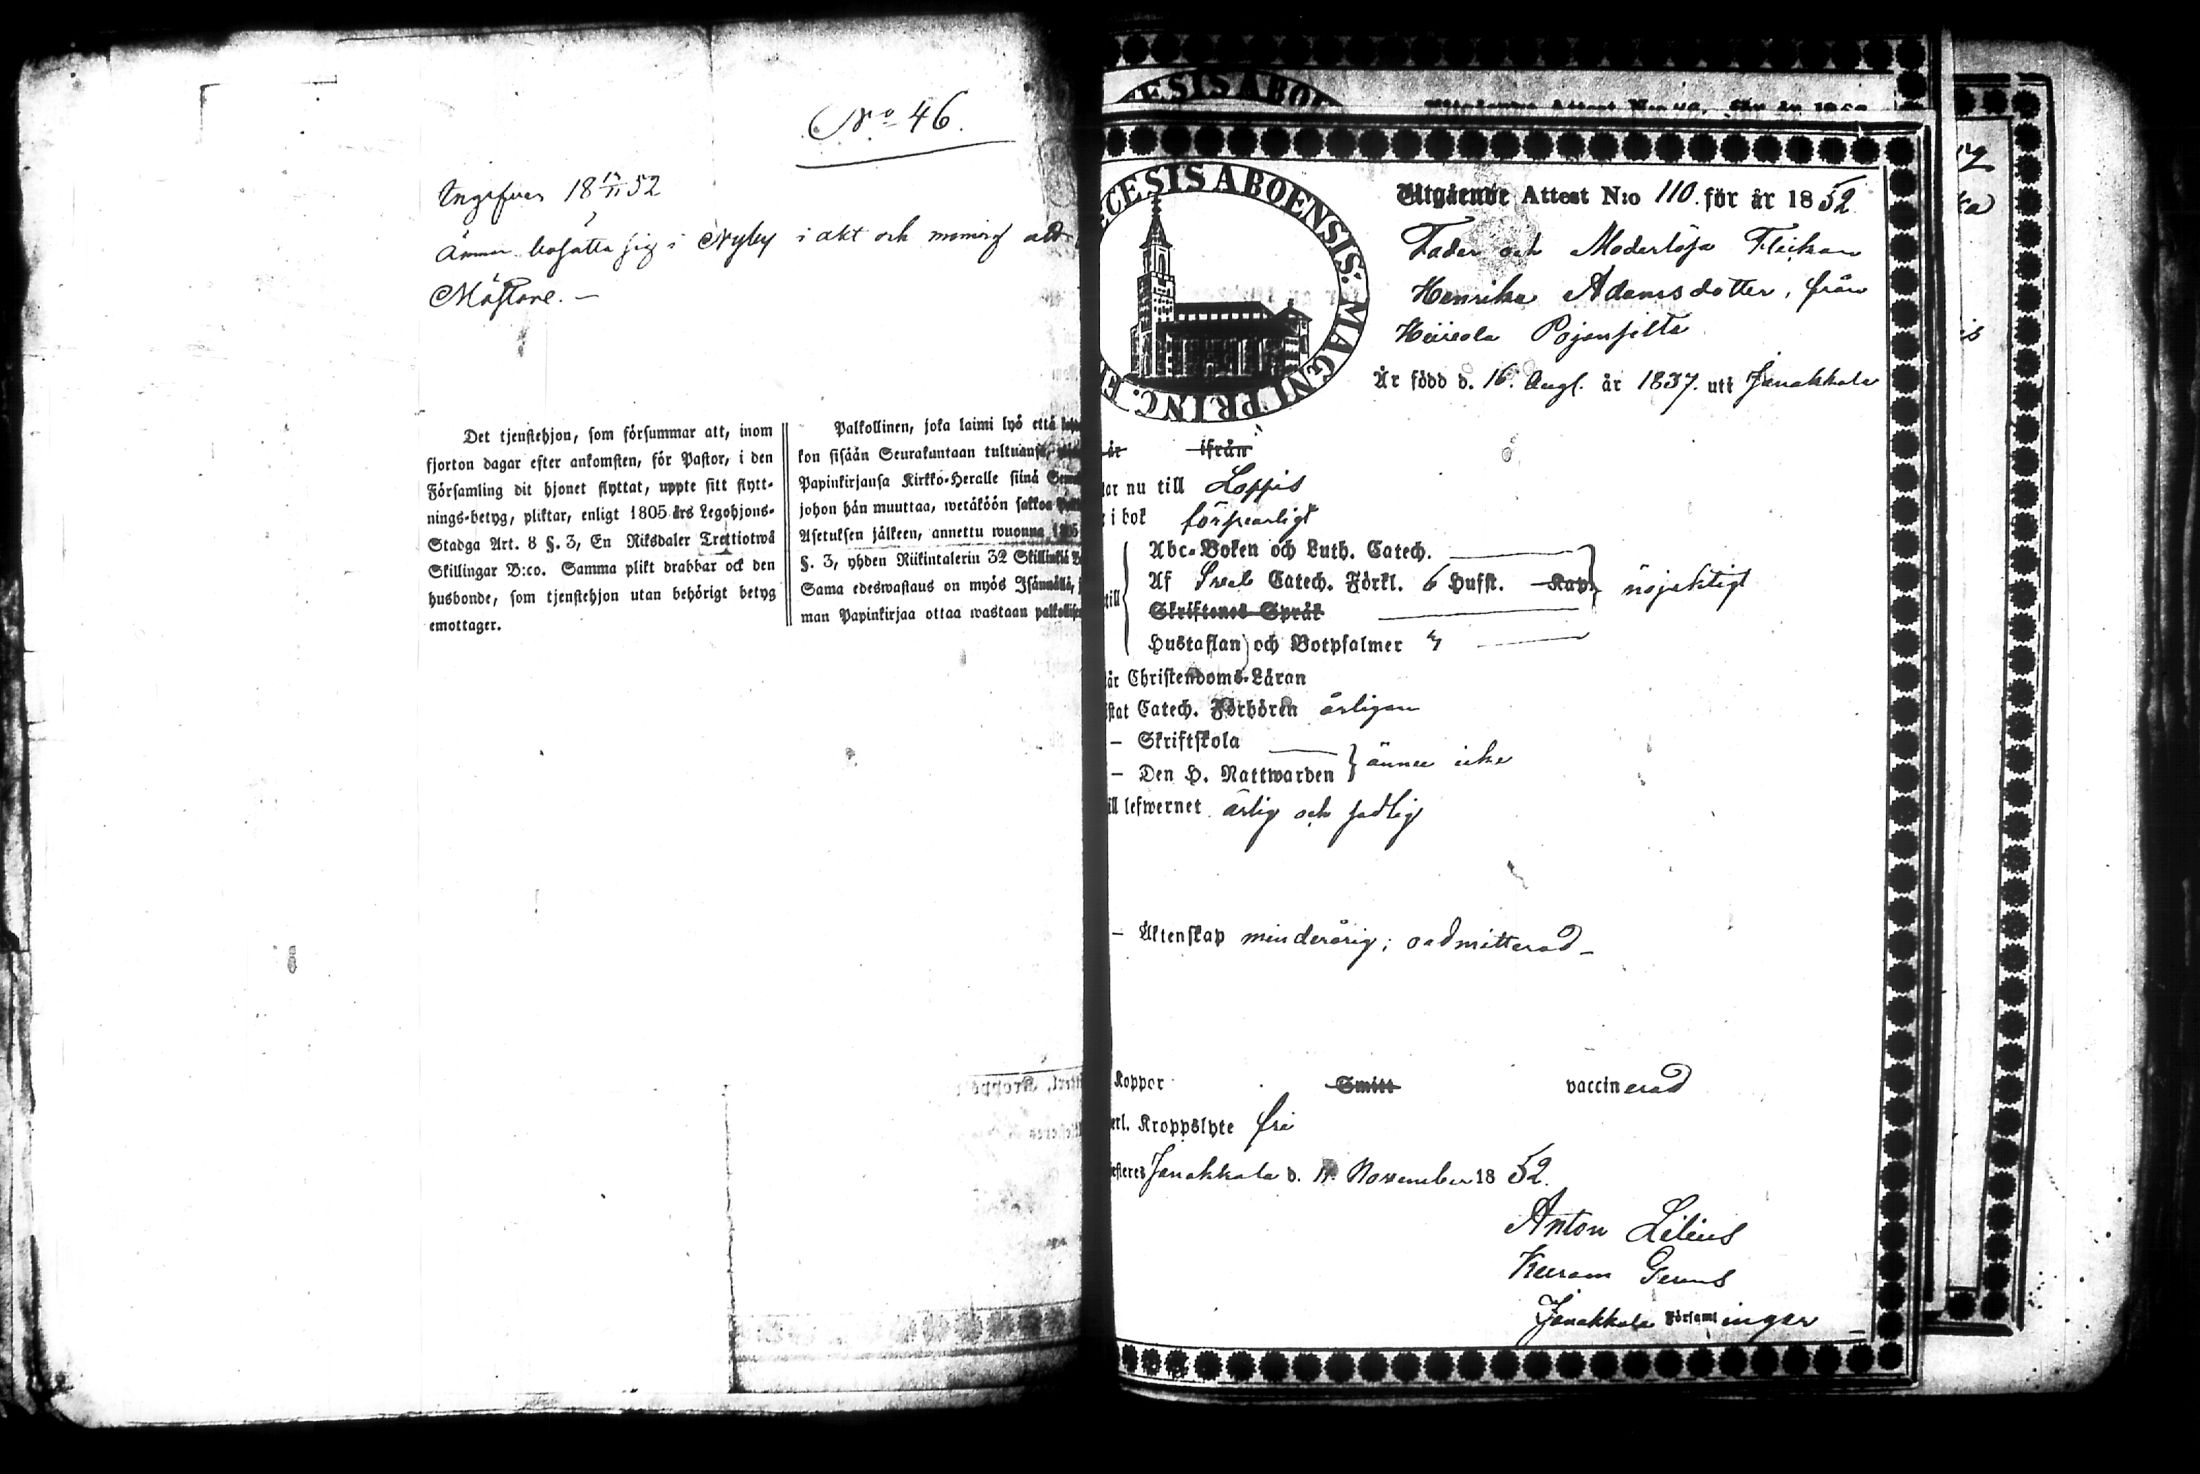 No 46.
18 17/11 52
i Nyby i akt och
Det tjenstehjon, som försummar att, inom
fjorton dagar efter ankomsten, för Pastor, i den
Församling dit hjonet flyttat, uppte sitt flytt-
nings-betyg, pliktar, enligt 1805 års Legohjons-
Stadga Art. 8 §. 3, En Riksdaler Trettiotwå
Skillingar B:co. Samma plikt drabbar ock den
husbonde, som tjenstehjon utan behörigt betyg
emottager.
Palkollinen, joka laimi lyö että
kon sisään Seurakuntaan tultuansa,
Papinkirjansa Kirkko-Heralle siinä
johon hän muuttaa, wetäköön sakkoa
Asetuksen jälkeen, annettu wuonna 1805
§. 3, yhden Riikintalerin 32 Skillinkiä
Sama edeswastaus on myös Isännällä,
man Papinkirjaa ottaa wastaan
ESIS ABO
ECESIS ABOENSIS: MAGNI PRINC. F
Utgående Attest N:o 110 för år 1852
Fader och Moderlösa Flickan
Henrika Adamsdotter, från
Poijansilta
Är född d. 16. Aug. år 1837. uti Janakkala
är ifrån
ar nu till Loppis
i bok försvarligt
till Abc-Boken och Luth. Catech.
Af Sveb Catech. Förkl. 6 Hufst. Kap. nöjaktigt
Skriftenes Språk
Hustaflan och Botpsalmer
är Christendoms-Läran
stat Catech. Förhören årligen
– Skriftskola
– Den H. Nattwarden ännu icke
ill lefwernet ärlig och sedlig
– Äktenskap minderårig; oadmitterad
Koppor Smitt vaccinerad
erl. Kroppslyte fri
esteres Janakkala d. 11 November 1852.
Anton Lilius
Janakkala Församlingar